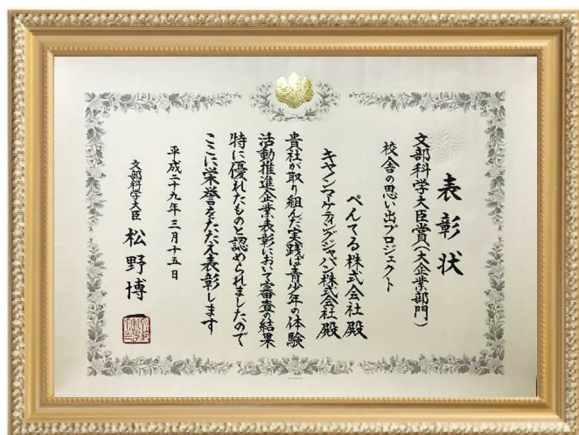 表彰状
文部科学大臣賞(大企業部門)
校舎の思い出プロジェクト
ぺんてる株式会社 殿
キヤノンマーケティングジャパン株式会社 殿
貴社が取り組んだ実践は青少年の体験
活動推進企業表彰において審査の結果
特に優れたものと認められましたので
ここに栄誉をたたえ表彰します
平成二十九年三月十五日
文部科学大臣 松野博一